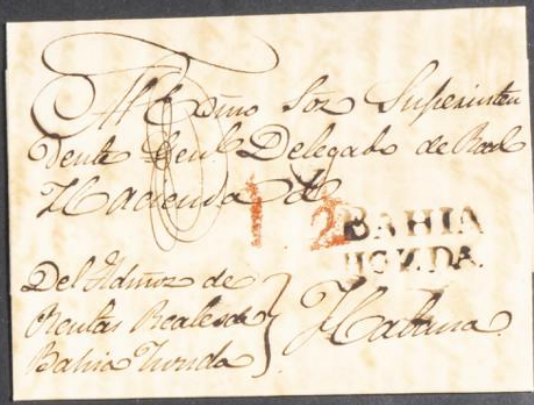 Al Exmo Sor Superinten
dente Genl. Delegado de Real
Hacienda de
1 2
BAHIA
HONDA.
Del Admor de
Rentas Reales de
Bahia Honda
Habana